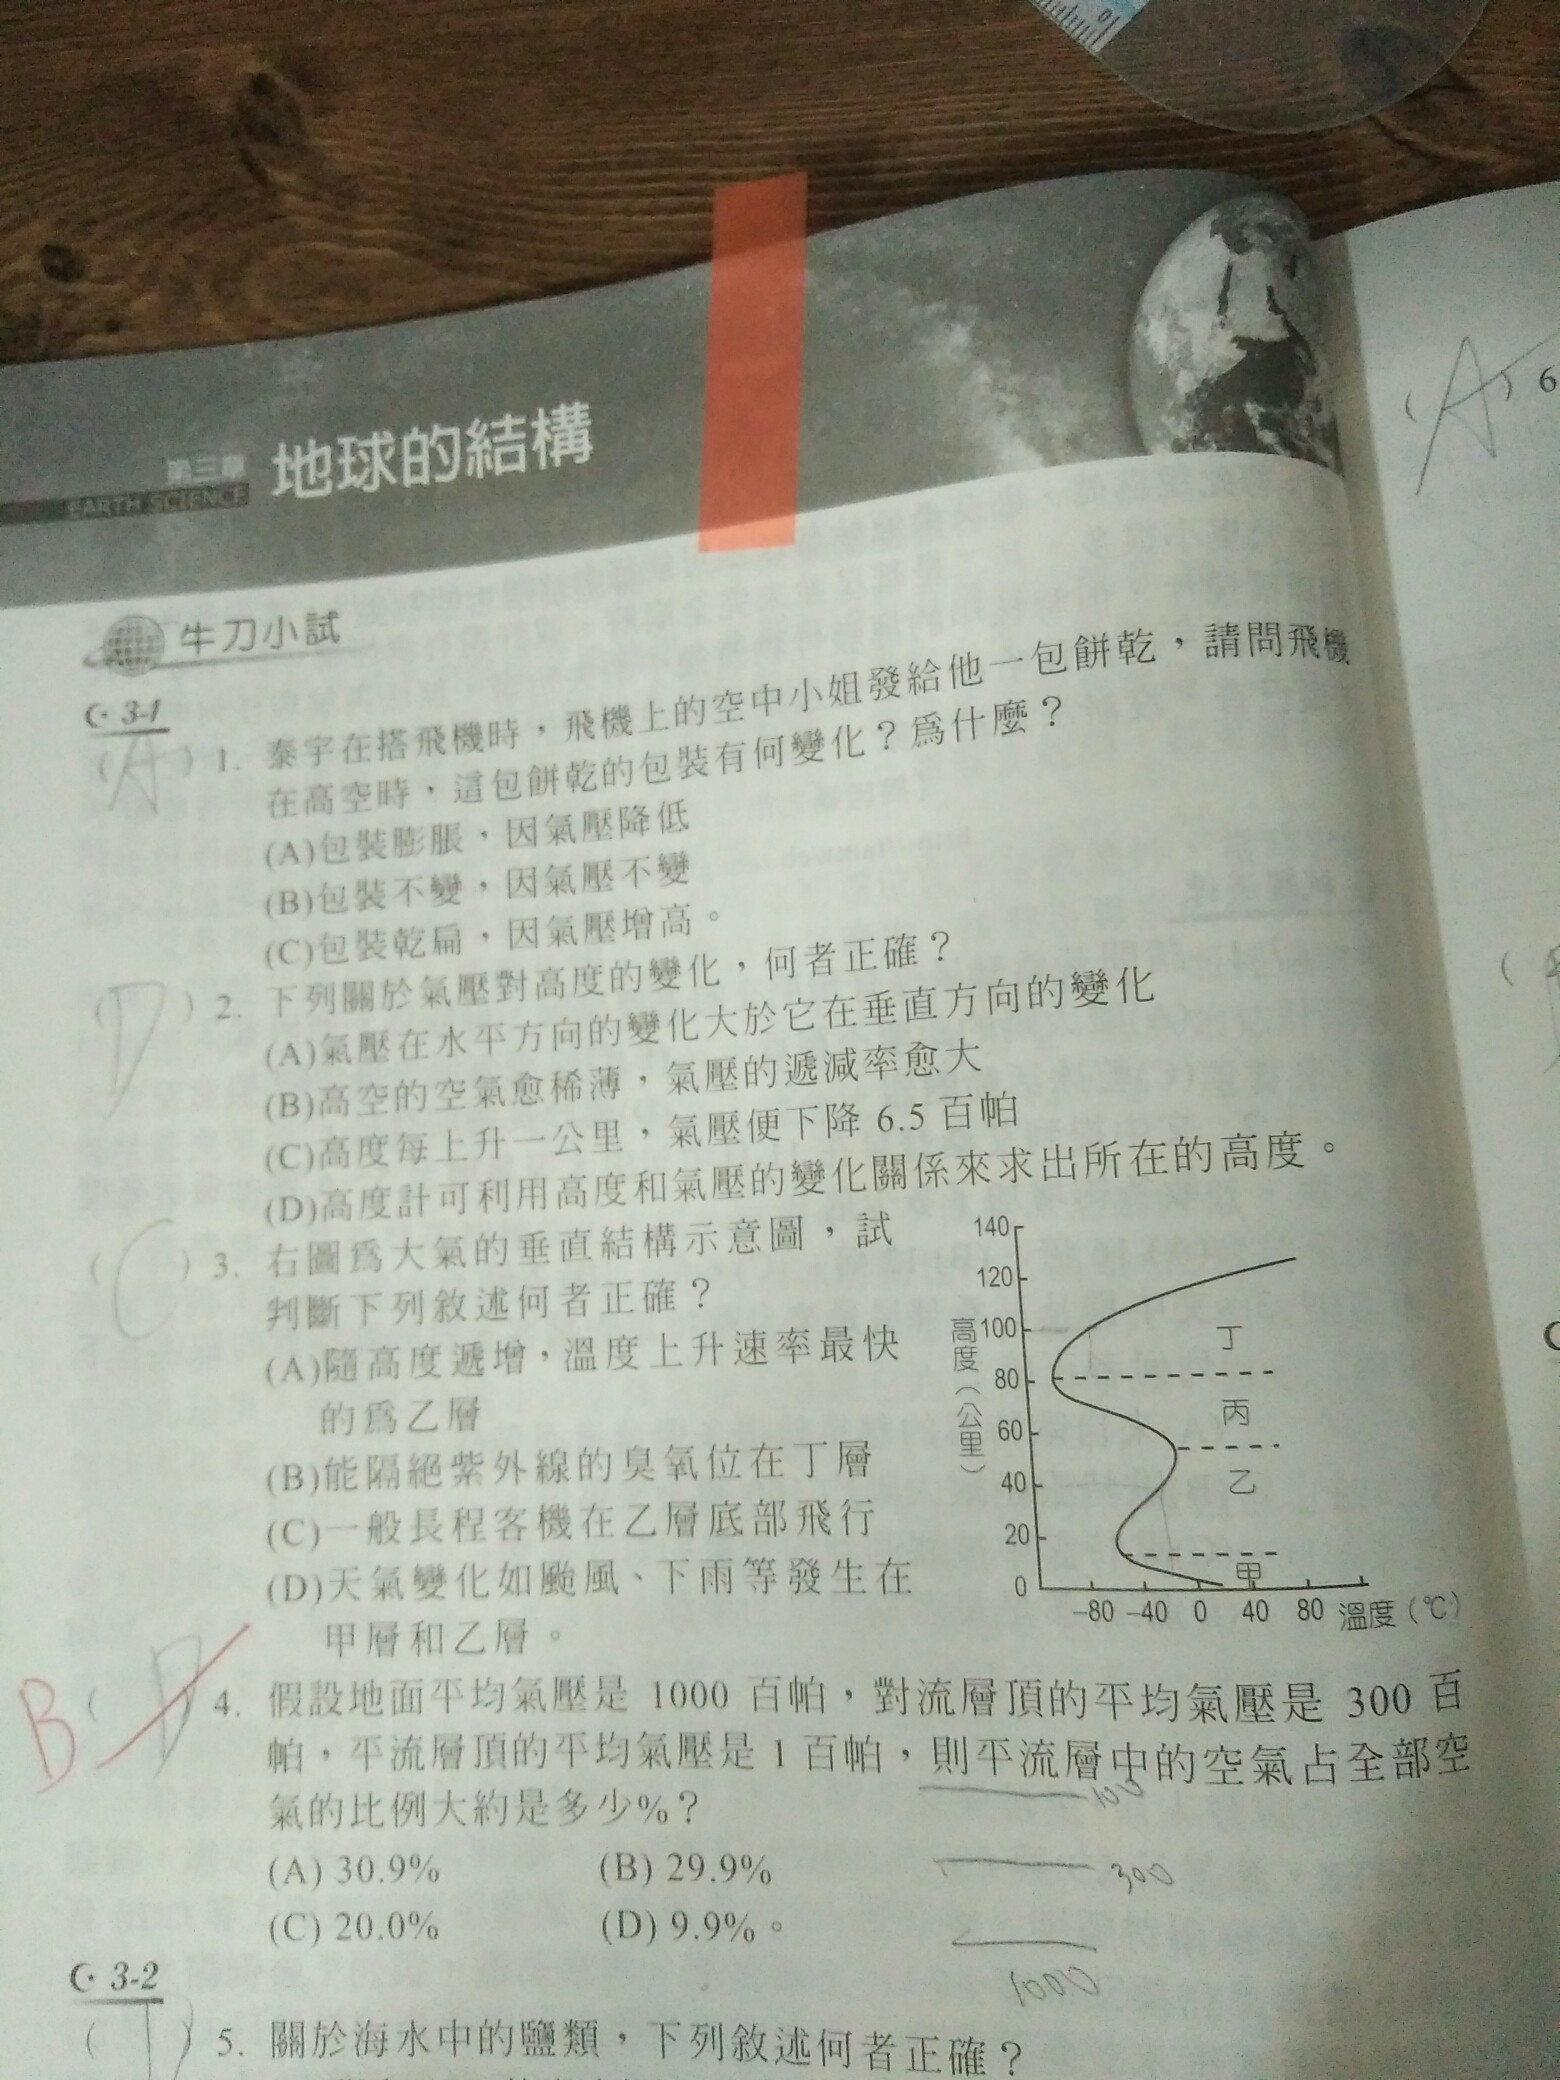 第三章 地球的結構
EARTH SCIENCE
牛刀小試
3-1
(A) 1. 泰宇在搭飛機時，飛機上的空中小姐發給他一包餅乾，請問飛機
在高空時，這包餅乾的包裝有何變化？爲什麼？
(A)包裝膨脹，因氣壓降低
(B)包裝不變，因氣壓不變
(C)包裝乾扁，因氣壓增高。
(D) 2. 下列關於氣壓對高度的變化，何者正確？
(A)氣壓在水平方向的變化大於它在垂直方向的變化
(B)高空的空氣愈稀薄，氣壓的遞減率愈大
(C)高度每上升一公里，氣壓便下降 6.5 百帕
(D)高度計可利用高度和氣壓的變化關係來求出所在的高度。
(C) 3. 右圖爲大氣的垂直結構示意圖，試
判斷下列敘述何者正確？
(A)隨高度遞增，溫度上升速率最快
的爲乙層
(B)能隔絕紫外線的臭氧位在丁層
(C)一般長程客機在乙層底部飛行
(D)天氣變化如颱風、下雨等發生在
甲層和乙層。
140
120
100
80
60
40
20
0
高度（公里）
丁
丙
乙
甲
-80 -40 0 40 80 溫度（℃）
B (D) 4. 假設地面平均氣壓是 1000 百帕，對流層頂的平均氣壓是 300 百
帕，平流層頂的平均氣壓是 1 百帕，則平流層中的空氣占全部空
氣的比例大約是多少%？
(A) 30.9% (B) 29.9%
(C) 20.0% (D) 9.9%。
300
1000
3-2
( ) 5. 關於海水中的鹽類，下列敘述何者正確？
(A) 6